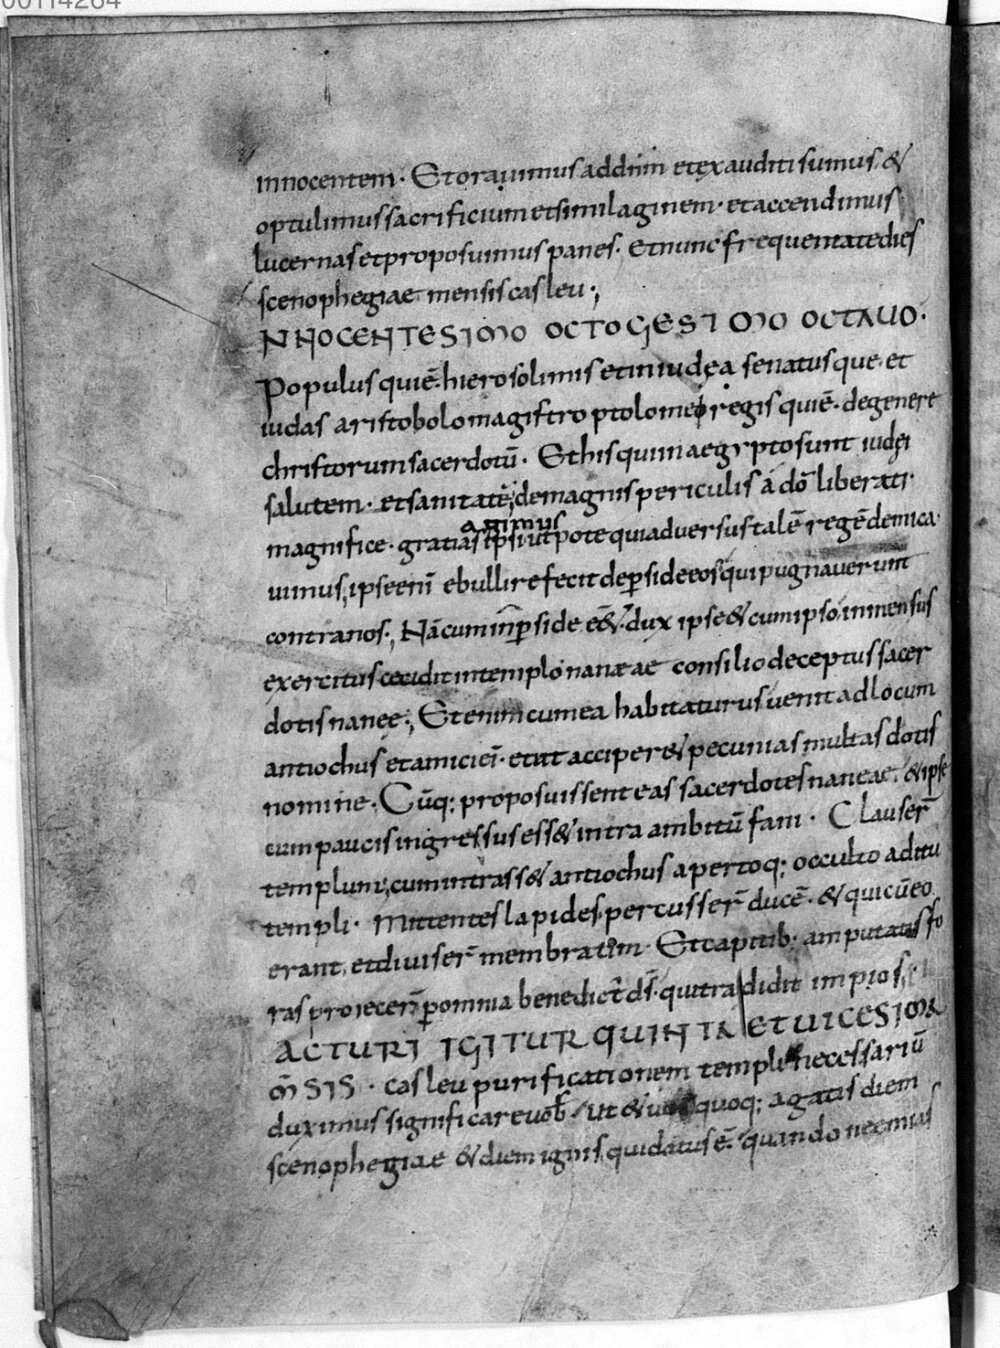 00114264
innocentem· Et orauimus ad dn̄m et exauditi sumus· &
optulimus sacrificium et similaginem· et accendimus
lucernas et proposuimus panes· Et nunc frequentate dies
scenophegiae mensis casleu·,
NNO CENTESIMO OCTOGESIMO OCTAUO·
Populus qui ē hierosolimis et in iudęa senatusque et
iudas aristobolo magistro ptolomei regis qui ē· de genere
christorum sacerdotū· Et his qui in aegypto sunt iudęi
salutem· et sanitatē, de magnis periculis a dō liberati·
agimus
magnifice· gratias ipsi utpote qui aduersus talē regē demica
uimus, ipse enī ebullire fecit de ꝑside eos qui pugnauerunt
contra nos·, Nā cum in ꝑside eēt dux ipse & cum ipso inmensus
exercitus cecidit in templo naneae consilio deceptus sacer
dotis nanee·, Etenim cum ea habitaturus uenit ad locum
antiochus et amici ei· et ut acciper& pecunias multas dotis
nomine· Cūq; proposuissent eas sacerdotes naneae· & ipse
cum paucis ingressus ess& intra ambitū fani· Clauser̄
templum, cum intrass& antiochus apertoq; occulto aditu
templi· Mittentes lapides percusser̄ ducē· & qui cū eo
erant, et diuiser̄ membratim· Et capitib· amputatis fo
ras proiecer̄ ꝑ omnia benedict' ds̄· qui tradidit impios·,
ACTURI IGITUR QUINTA ET UICESIMA
M̄SIS· casleu purificationem templi necessariū
duximus significare uob̄· Ut & uos quoq; agatis diem
scenophegiae & diem ignis qui datus ē· quando neemias